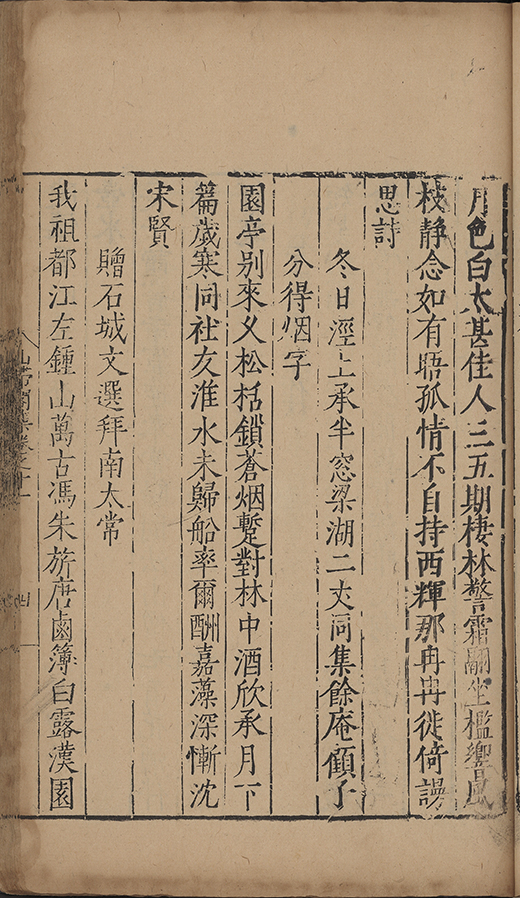 月色白太甚佳人三五期棲林警霜翮坐檻響風
枝静念如有晤孤情不自持西輝那冉冉徙倚謾
思詩
冬日溼上承半窓梁湖二丈同集餘庵顧予
分得烟字
園亭别來乂松栝鎖蒼烟蹔對林中酒欣承月下
篇歲寒同社友淮水未歸船率爾酬嘉藻深慚沈
宋賢
贈石城文選拜南太常
我祖都江左鍾山萬古馮朱旂唐鹵簿白露漢園